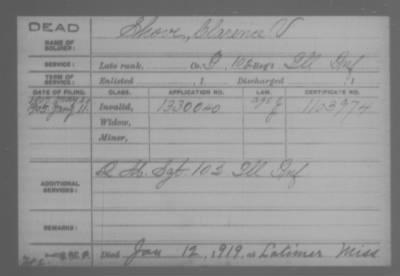 DEAD
NAME OF SOLDIER: Shove, Clarence V
SERVICE: Late rank, Co. G, 103 Reg't Ill Inf
TERM OF SERVICE: Enlisted , 1 Discharged , 1
DATE OF FILING. CLASS. APPLICATION NO. LAW. CERTIFICATE NO.
Invalid, 1330040 1103974
Widow,
Minor,
ADDITIONAL SERVICES: Sgt 103 Ill Inf
REMARKS:
Died Jan 12, 1919, at Latimer Miss